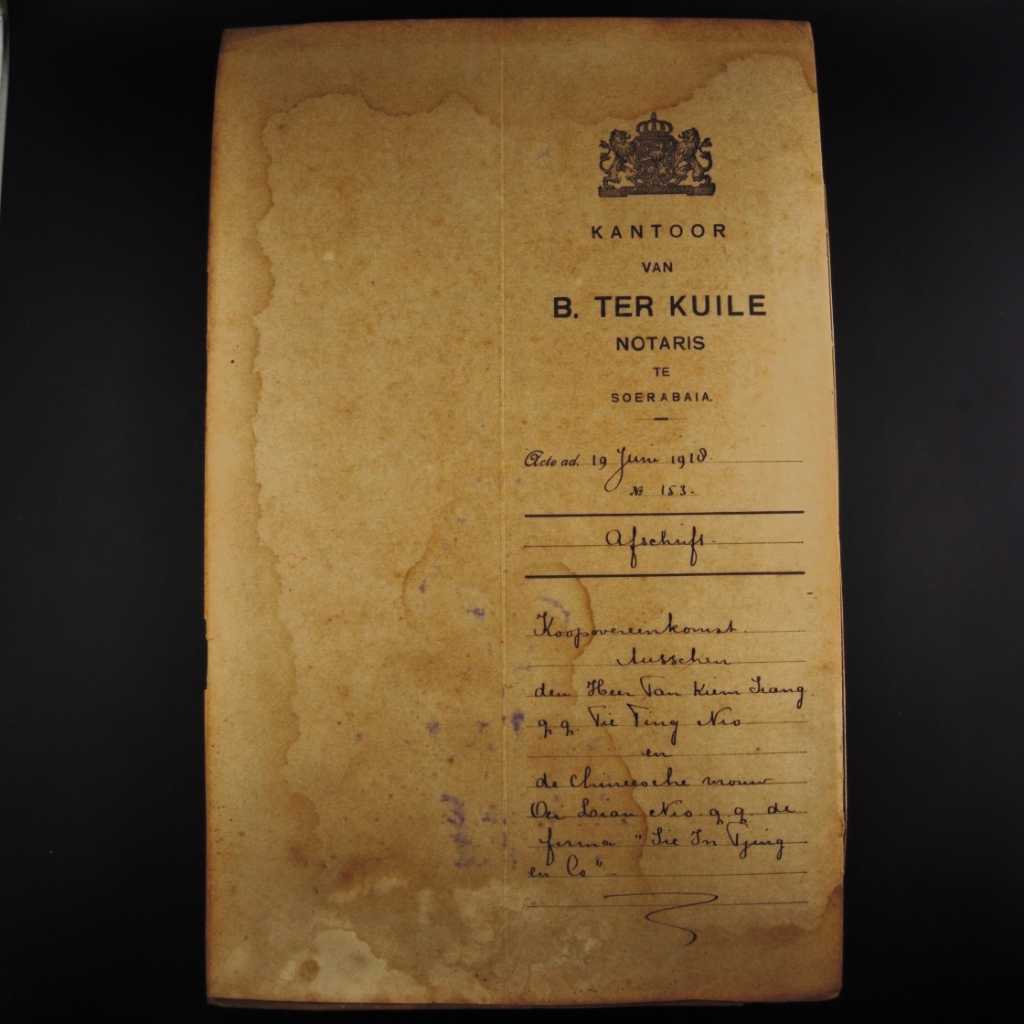 KANTOOR
VAN
B. TER KUILE
NOTARIS
TE
SOERABAIA.
Acte ad. 19 Juni 1918.
№ 153.
Afschrift
Koopovereenkomst
tusschen
den Heer Tan Kiem
q.q. Tie Ting Nio
en
de Chineesche vrouw
Oei Lian Nio q.q. de
firma " Sie In Tjing
en Co"